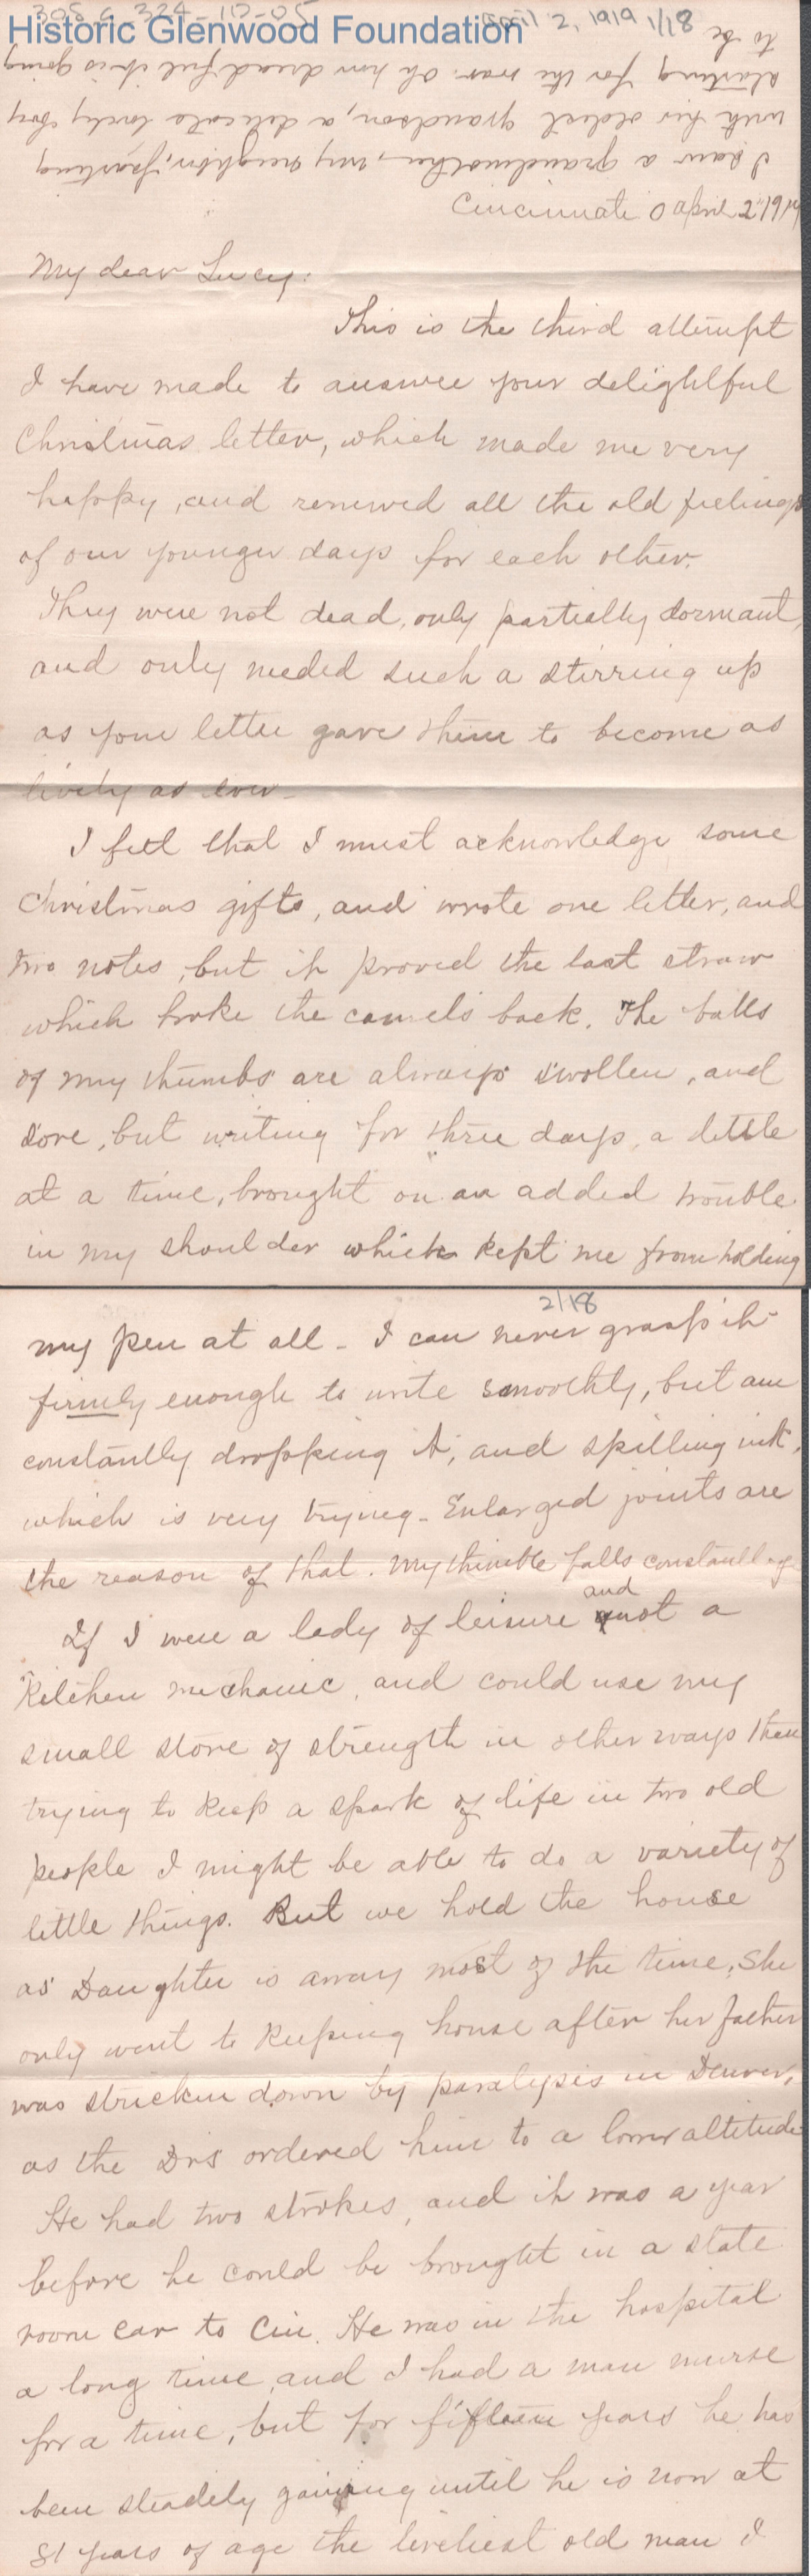 305.6-324-1D-05 April 2, 1919 1/18
Historic Glenwood Foundation
I saw a grandmother, my neighbor, parting
with her oldest grandson, a delicate lovely boy
starting for the war. Oh how dreadful it is going
to be
Cincinnati O April 2" 1919
My dear Lucy:
This is the third attempt
I have made to answer your delightful
Christmas letter, which made me very
happy, and renewed all the old feelings
of our younger days for each other.
They were not dead, only partially dormant,
and only needed such a stirring up
as your letter gave them to become as
lively as ever -
I felt that I must acknowledge some
Christmas gifts, and wrote one letter, and
two notes, but it proved the last straw
which broke the camels back. The balls
of my thumbs are always swollen, and
sore, but writing for three days, a little
at a time, brought on an added trouble
in my shoulder which kept me from holding
2/18
my pen at all - I can never grasp it
firmly enough to write smoothly, but am
constantly dropping it, and spilling ink,
which is very trying - Enlarged joints are
the reason of that. My thimble falls constantly
If I were a lady of leisure and not a
Kitchen mechanic, and could use my
small store of strength in other ways than
trying to keep a spark of life in two old
people I might be able to do a variety of
little things. But we hold the house
as Daughter is away most of the time, She
only went to Keeping house after her father
was stricken down by paralysis in Denver,
as the Drs ordered him to a lower altitude
He had two strokes, and it was a year
before he could be brought in a state
room car to Cin. He was in the hospital
a long time, and I had a man nurse
for a time, but for fifteen years he has
been steadily gaining until he is now at
81 years of age the liveliest old man I